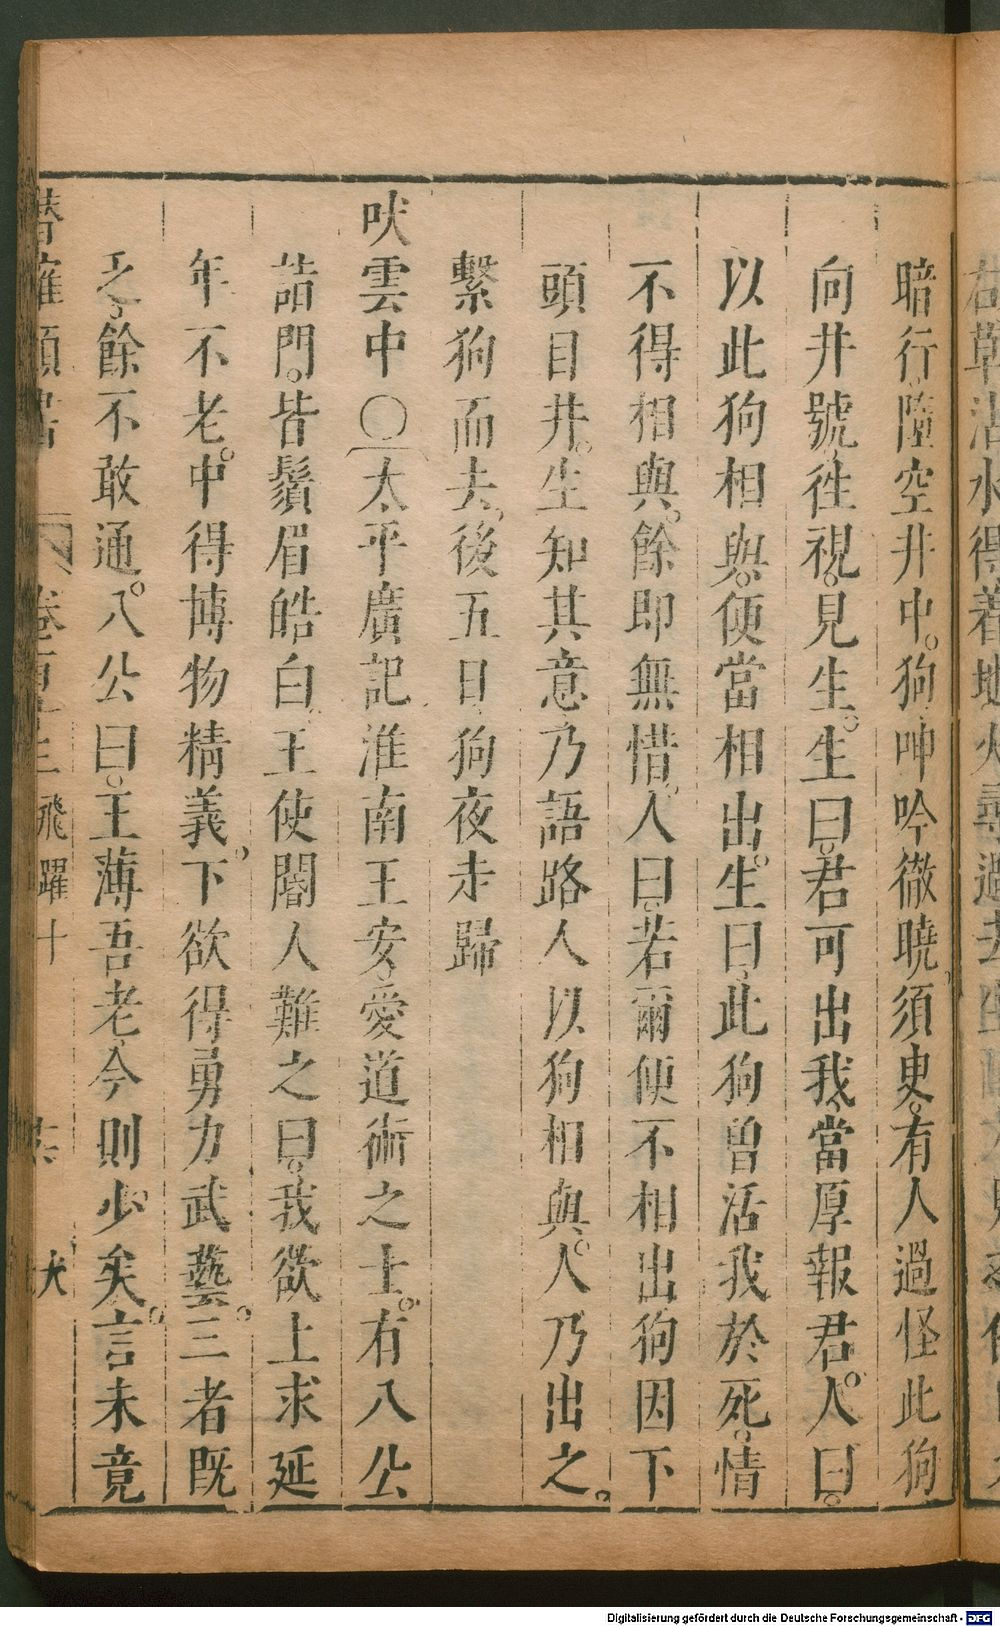 暗行。墮空井中。狗呻吟徹曉。須臾。有人過怪此狗
向井號。往視。見生。生曰。君可出我。當厚報君。人曰。
以此狗相與。便當相出。生曰。此狗曽活我於死。情
不得相與。餘即無惜。人曰。若爾便不相出狗因下
頭目井。生知其意乃語路人以狗相與。人乃出之。
繫狗而去。後五日狗夜走歸
吠雲中〇太平廣記淮南王安。愛道術之士。有八公
詣門。皆鬚眉皓白。王使閽人。難之曰。我欲上求延
年不老。中得博物精義。下欲得勇力武藝。三者旣
乏。餘不敢通。八公曰。王薄吾老。今則少矣。言未竟
潛確類書 飛躍十 犬
Digitalisierung gefördert durch die Deutsche Forschungsgemeinschaft - DFG